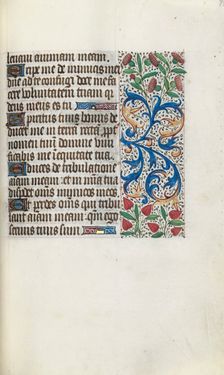 leuaui animam meam.
Eripe me de inimicis mei
domine ad te confugi doce me fa
cere voluntatem tuam qa
deus meus es tu
Spiritus tuus bonus de
ducet me in terra recta, ppt
nomen tuum domine viui
ficabis me i equitate tua.
Educes de tribulatione
aiam meam: et in mia tua
disperdes oms inimicos meos
Et perdes oms qui tribu
lant aiam meam: qm ego
seruus tuus sum